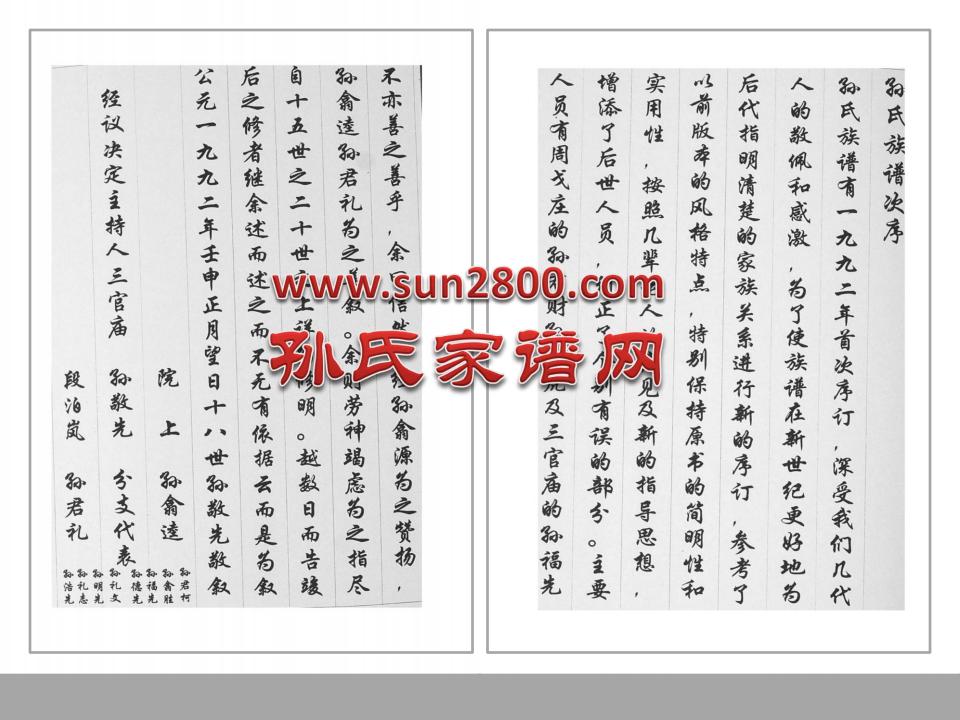 孙氏族谱次序
孙氏族谱有一九九二年首次序订，深受我们几代
人的敬佩和感激，为了使族谱在新世纪更好地为
后代指明清楚的家族关系进行新的序订，参考了
以前版本的风格特点，特别保持原书的简明性和
实用性，按照几辈 人 见及新的指导思想，
增添了后世人员， 正了 别有误的部分。主要
人员有周戈庄的孙 财 及三官庙的孙福先
不亦善之善乎，余 孙翕源为之赞扬，
孙翕逵孙君礼为之 叙。余则劳神竭虑为之指尽
自十五世之二十世 上详 修明。越数日而告竣
后之修者继余述而述之而不无有依据云而是为叙
公元一九九二年壬申正月望日十八世孙敬先敬叙
经议决定主持人三官庙 孙敬先 分支代表
院上 孙翕逵
段泊岚 孙君礼
孙君柯
孙翕胜
孙福先
孙德先
孙礼文
孙明先
孙礼志
孙浩先
www.sun2800.com
孙氏家谱网